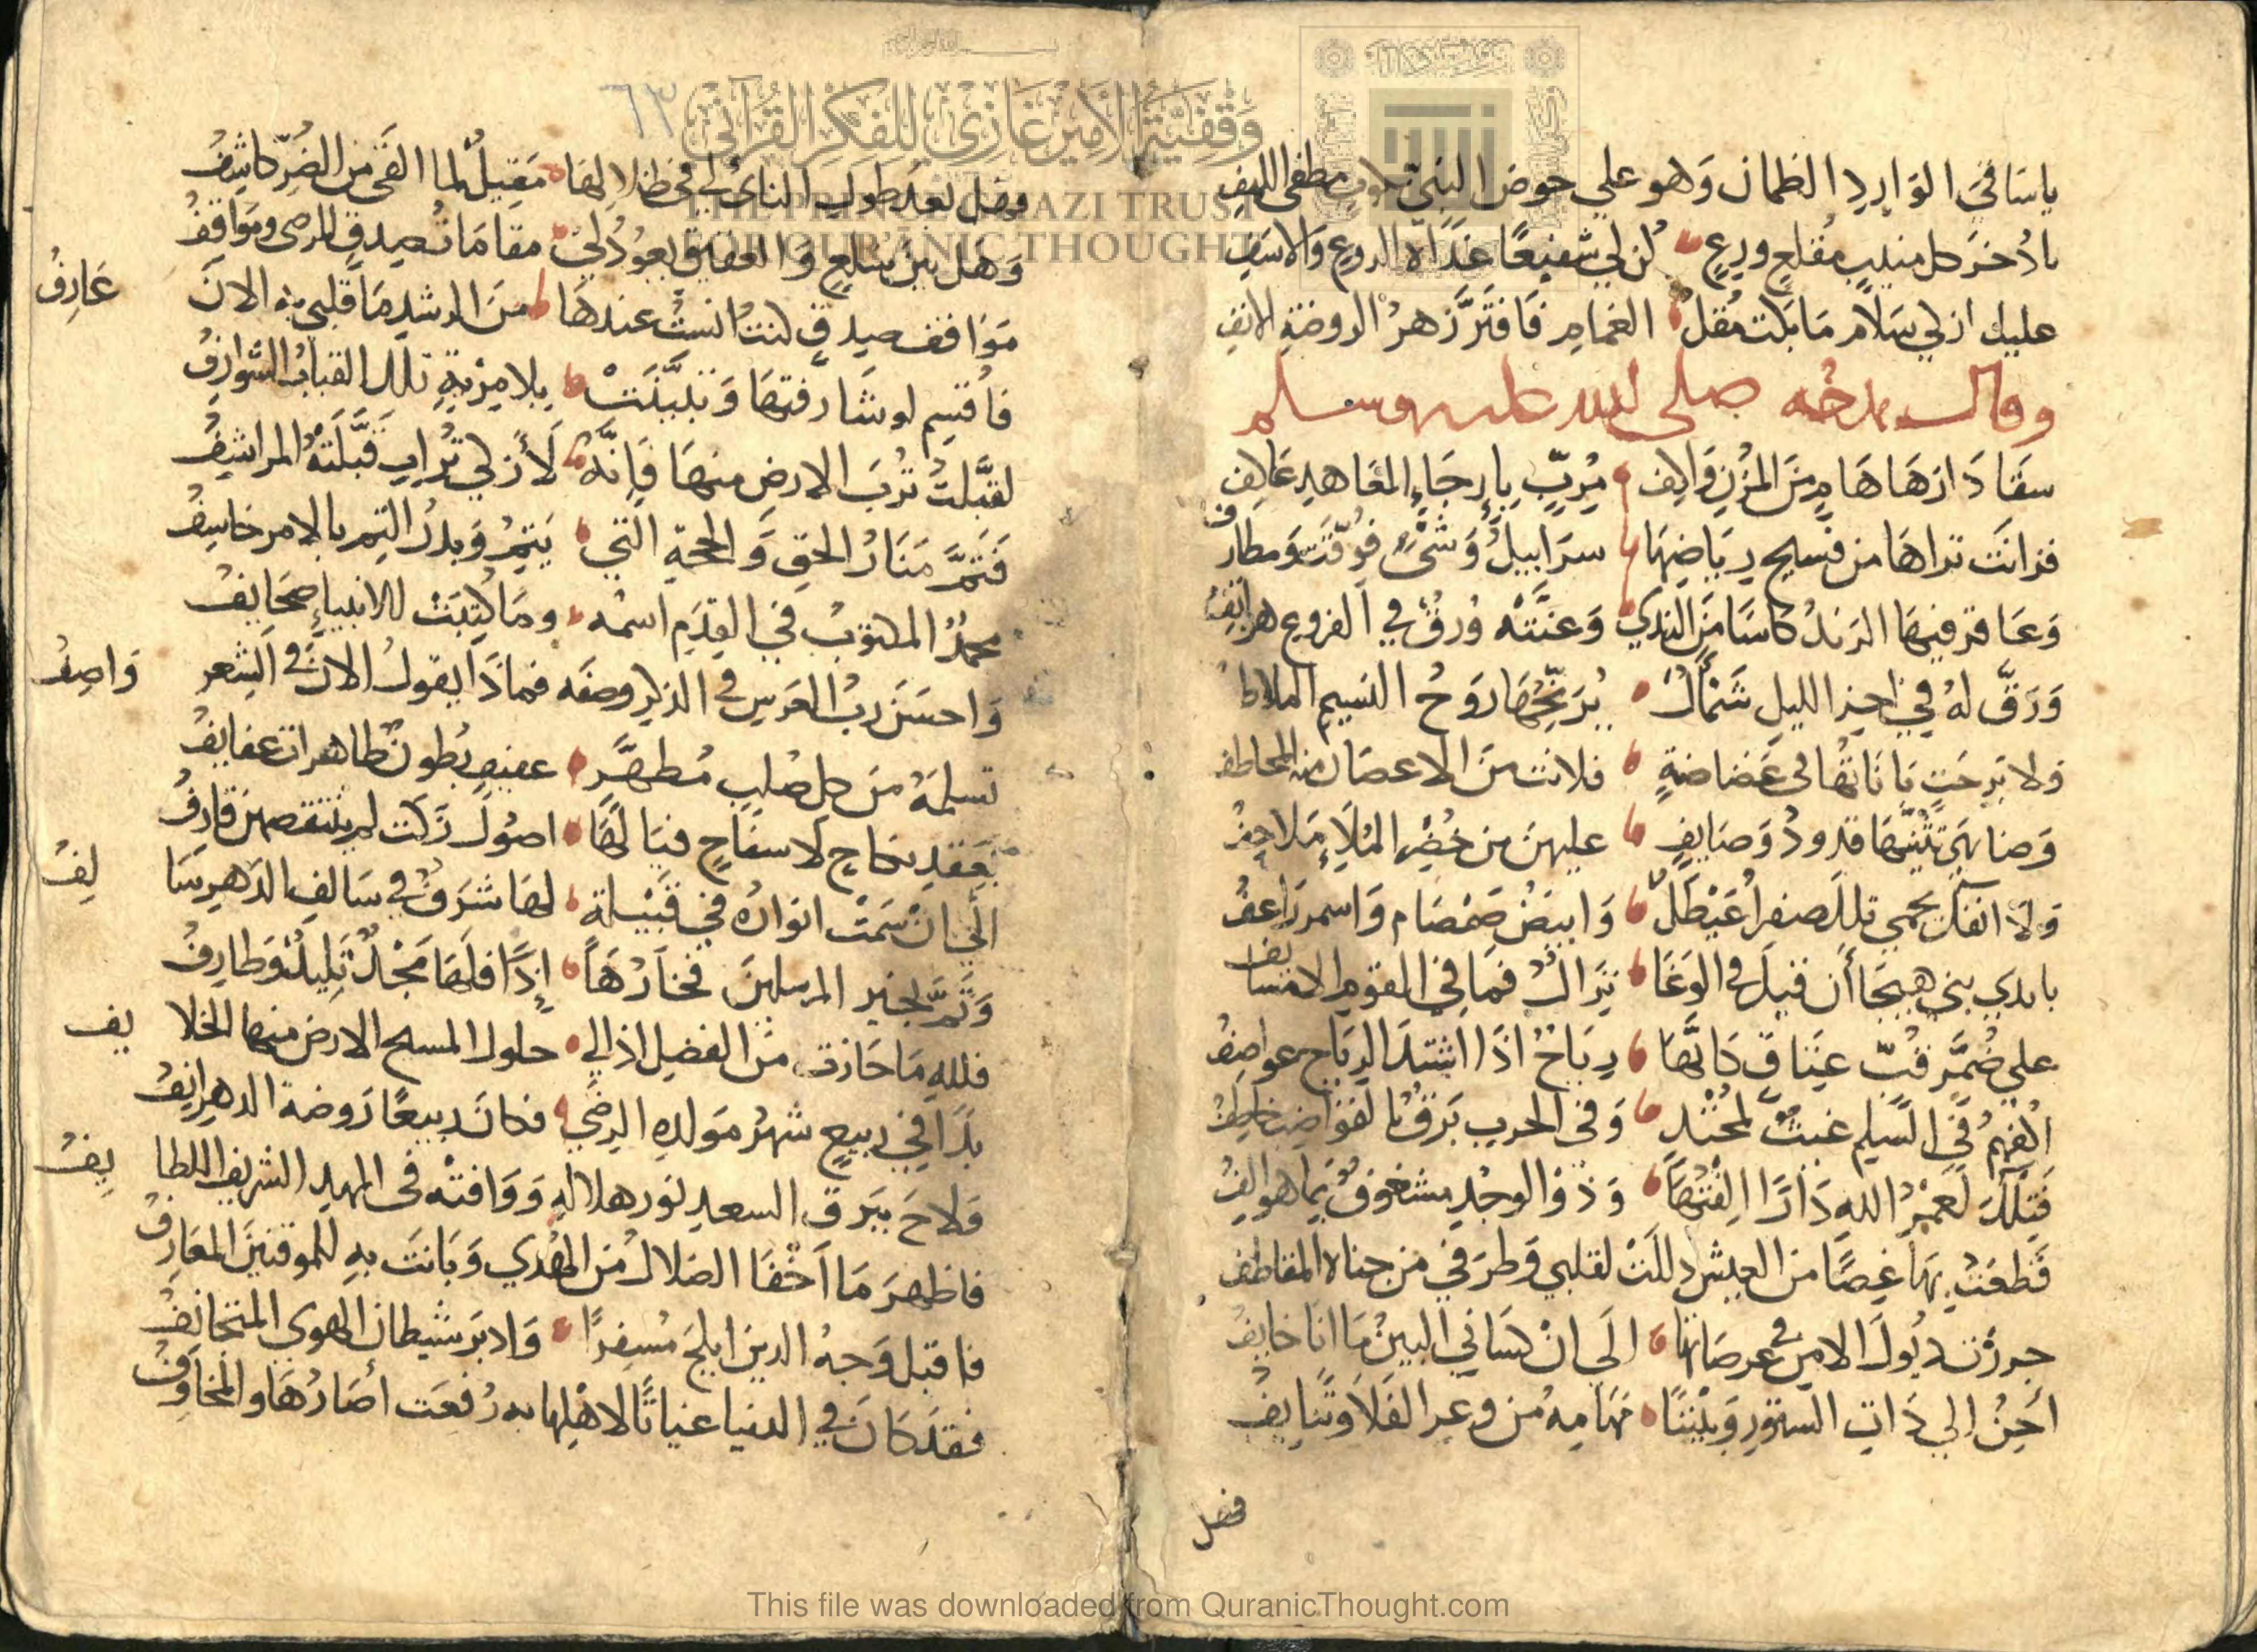 يا ساقي الوارد الظمان وهو علي حوض النبي مطفي اللهف
يا ذخر كل منيب مقلع ورع كن لي شفيعا غداة الروع والاسف
عليك ازكي سلام ما بكت مقل الغمام فافتر زهر الروضة الانف
وقال يمدحه صلى الله عليه وسلم
سقا دارها هام من المزن واكف مرب بارجاء المعاهد عاكف
فزانت تراها من فسيح رياضها سرابيل وشي فوقت ومطارف
وعاقر فيها الرند كاسا من الندي وغنته ورق في الفروع هواتف
ورق له في اخر الليل شمأل يرنحها روح النسيم الملاطف
ولا برحت باناتها في غضاضة فلانت من الاغصان منه المعاطف
وضاهي تثنيها قدود وصايف عليهن من خضر الملاء ملاحف
ولا انفك يحمي تلك صفرا عيطل وابيض صمصام واسمر راعف
بايدي بني هيجا أن قيل في الوغا نزال فما في القوم الا مسايف
علي ضمر قب عتاق كانها رياح اذا اشتد الرياح عواصف
اكفهم في السلم غيث لمجتد وفي الحرب برق بالقواضب خاطف
فتلك لعمر الله دارا الفتها وذو الوجد مشغوف بما هو الف
قطعت بها غصا من العيش ذللت لقلبي وطرفي من جناه المقاطف
جررت ذيول الامن في عرصاتها الي ان كساني البين ما انا خايف
احن الي ذات الستور وبيننا مهامه من وعر الفلا وتنايف
فهل
٦٣
وَقْفِيَّةُ الأَمِيرْ غَازِي لِلْفِكْرِ القُرْآنِيّ
THE PRINCE GHAZI TRUST
FOR QUR'ANIC THOUGHT
فهل بعد طول الناي لي في ظلالها مقيل لما القي من الضر كاشف
وهل بين سلع والعقيق يعود لي مقامات صدق للرضي ومواقف
مواقف صدق كنت انست عندها من الرشد ما قلبي به الان عارف
فاقسم لو شارفتها وتبينت بلا مرية تلك القباب الشوارف
لقبلت ترب الارض منها فانه لأزكي تراب قبلته المراشف
فثم منار الحق والحجة التي يتم وبدر التم بالامر خاسف
محمد المكتوب في القدم اسمه وما كتبت للانبياء صحايف
واحسن رب العرش في الذكر وصفه فماذا يقول الان في الشعر واصف
تسلمه من كل صلب مطهر عفيف بطون طاهرات عفايف
بعقد نكاح لا سفاح فيا لها اصول زكت لم ينتقصهن قارف
الي ان سمت انواره في قبيلة لها شرف في سالف الدهر سالف
وتم لخير المرسلين فخارها إذا فلها مجد تليد وطارف
فلله ما حازت من الفضل اذ الي حلول المسيح الارض منها الخلايف
بدا في ربيع شهر مولده الرضي فكان ربيعا روضة الدهر انف
ولاح ببرق السعد نور هلاله ووافته في المهد الشريف اللطايف
فاظهر ما اخفا الضلال من الهدي وبانت به للموقنين المعارف
فاقبل وجه الدين ابلج مسفرا وادبر شيطان الهوي المتجانف
فقد كان في الدنيا غياثا لاهلها به رفعت أصارها والمخاوف
This file was downloaded from QuranicThought.com